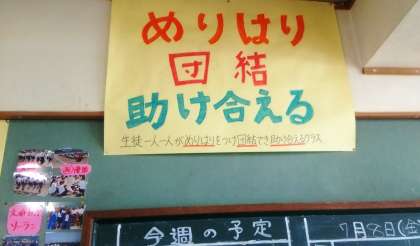 めりはり
団結
助け合える
生徒一人一人がめりはりをつけ団結でき助け合えるクラス
今週の予定
7月8日(金
ソーラン